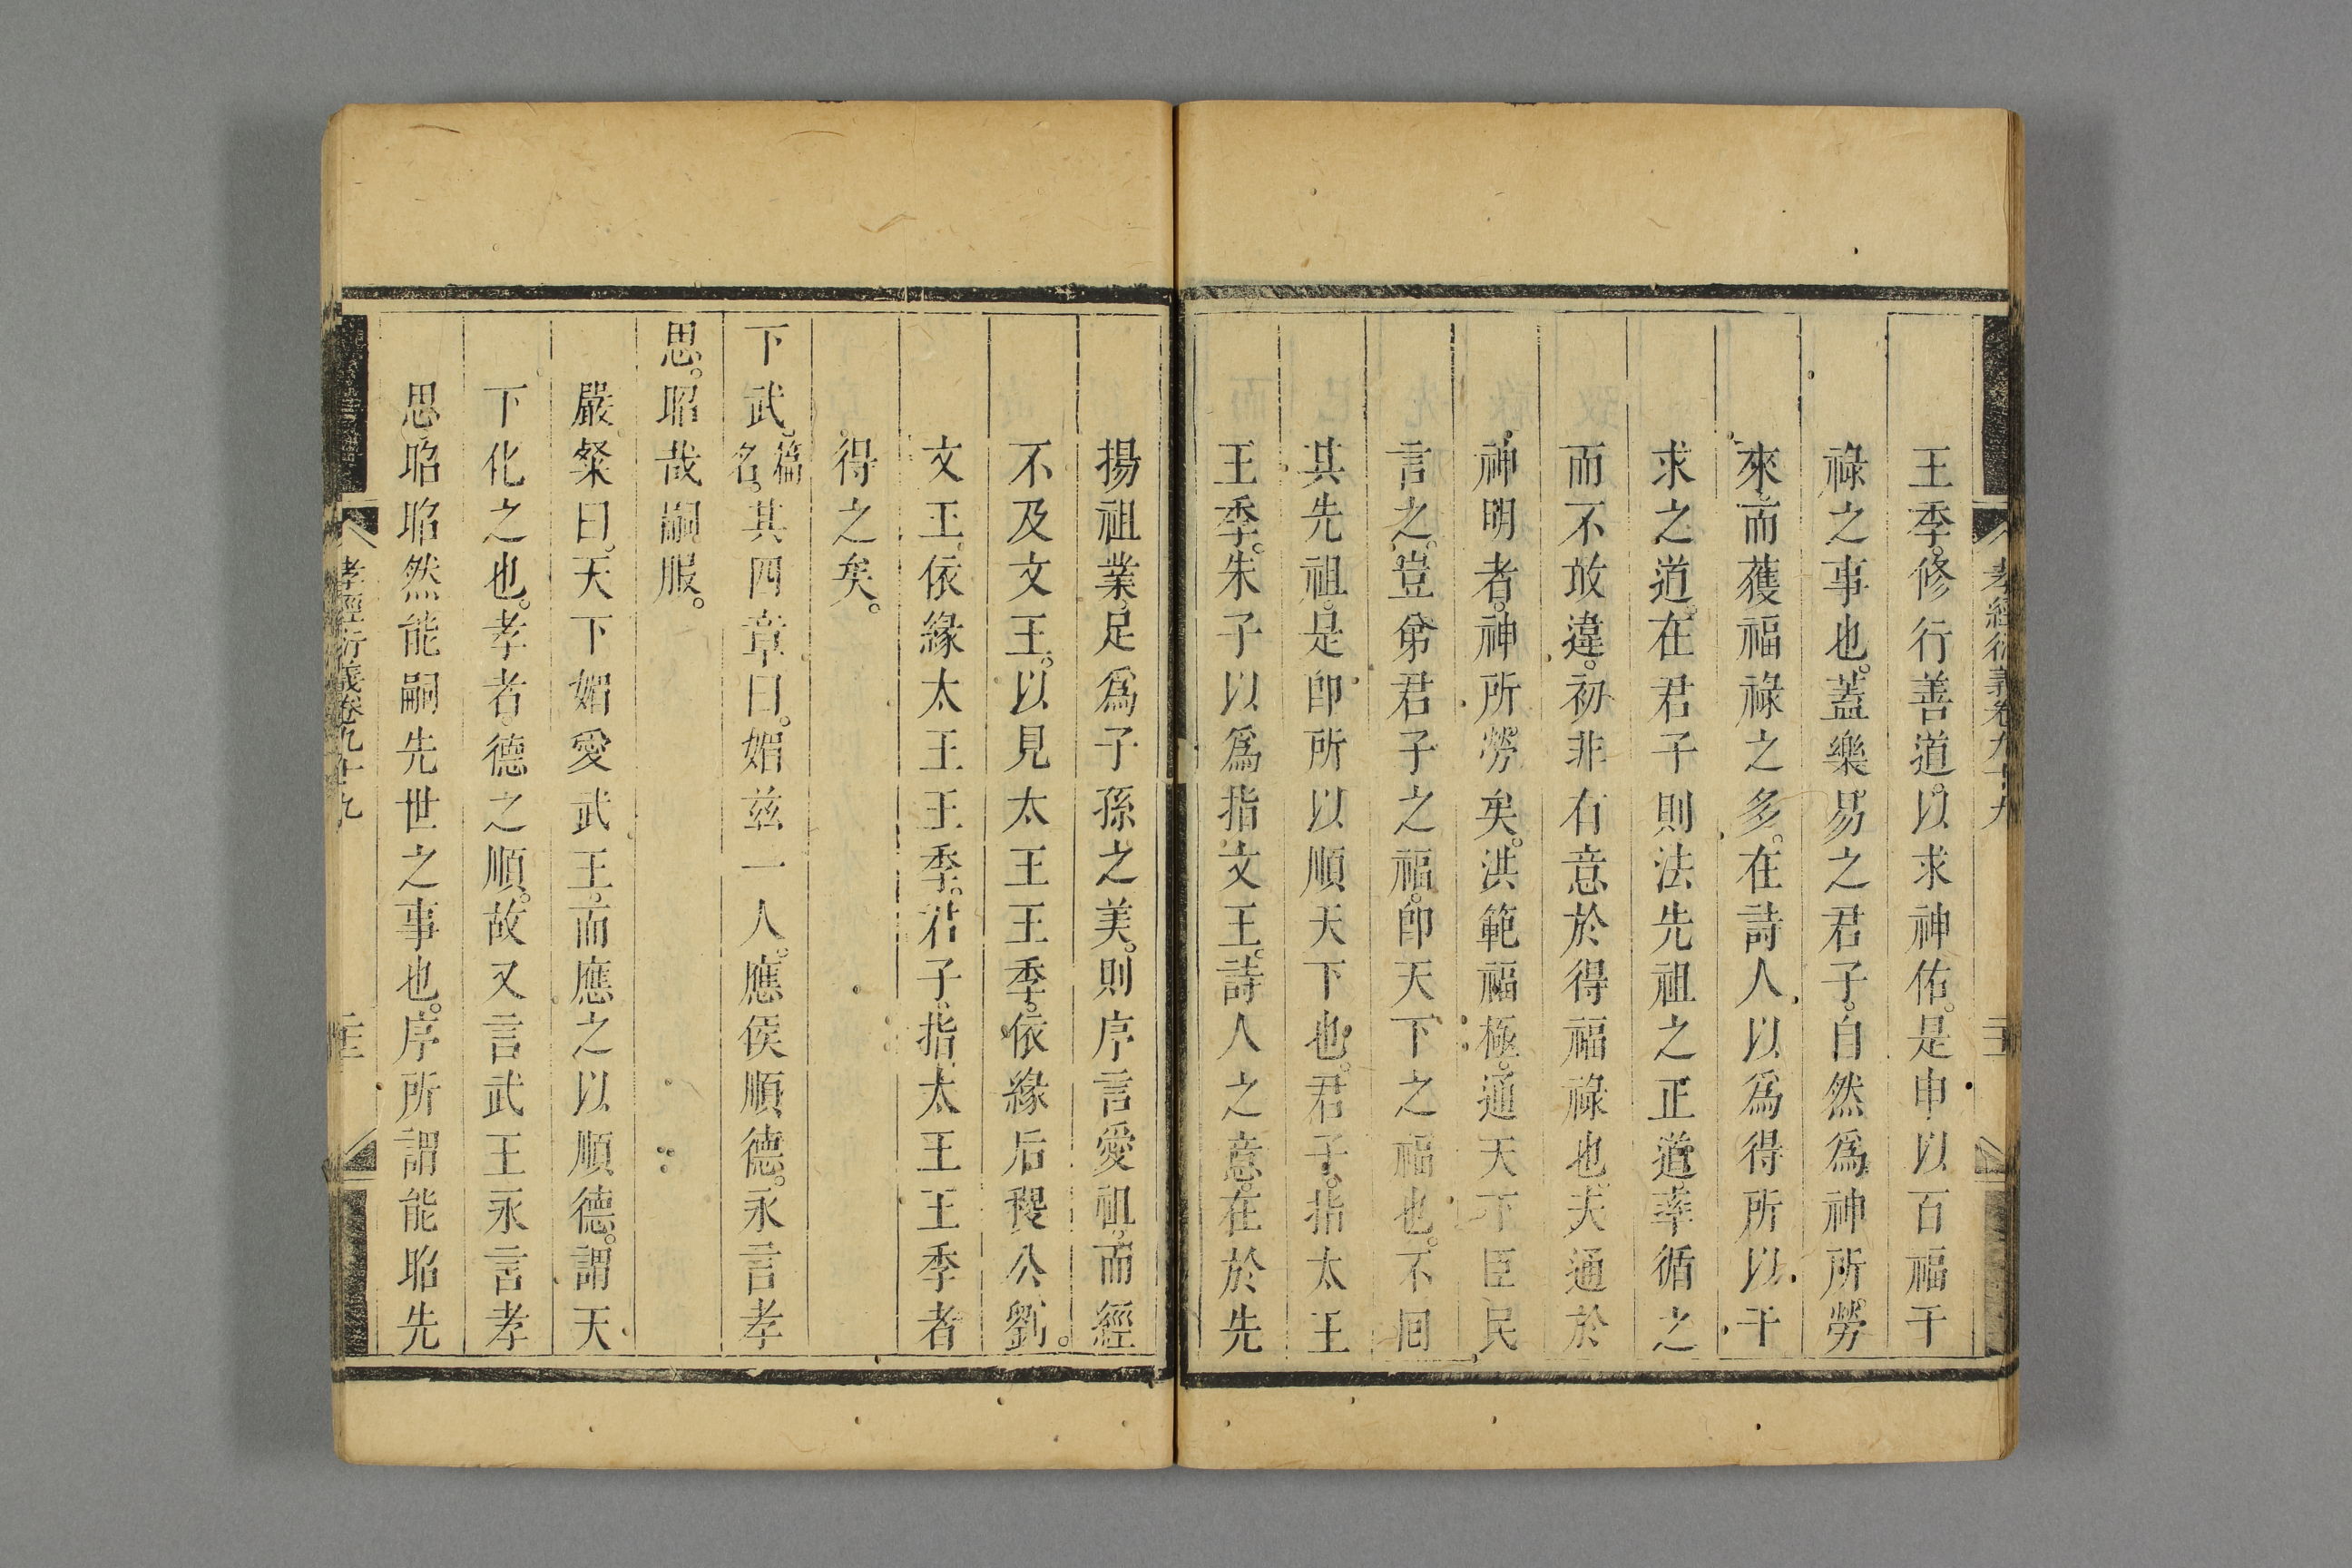 孝經衍義卷九十九
王季。修行善道。以求神佑。是申以百福干
祿之事也。蓋樂易之君子。自然爲神所勞
來。而獲福祿之多。在詩人。以爲得所以干
求之道。在君子則法先祖之正道。率循之
而不敢違。初非有意於得福祿也。夫通於
神明者。神所勞矣。洪範福極。通天下臣民
言之。豈弟君子之福。卽天下之福也。不囘
其先祖。是卽所以順天下也。君子。指太王
王季。朱子以爲指文王。詩人之意。在於先
揚祖業。足爲子孫之美。則序言愛祖。而經
不及文王。以見太王王季。依緣后稷公劉。
文王。依緣太王王季。君子。指太王王季者
得之矣。
下武。篇名。其四章曰。媚茲一人。應侯順德。永言孝
思。昭哉嗣服。
嚴粲曰。天下媚愛武王。而應之以順德。謂天
下化之也。孝者。德之順。故又言武王永言孝
思。昭昭然能嗣先世之事也。序所謂能昭先
孝經衍義卷九十九